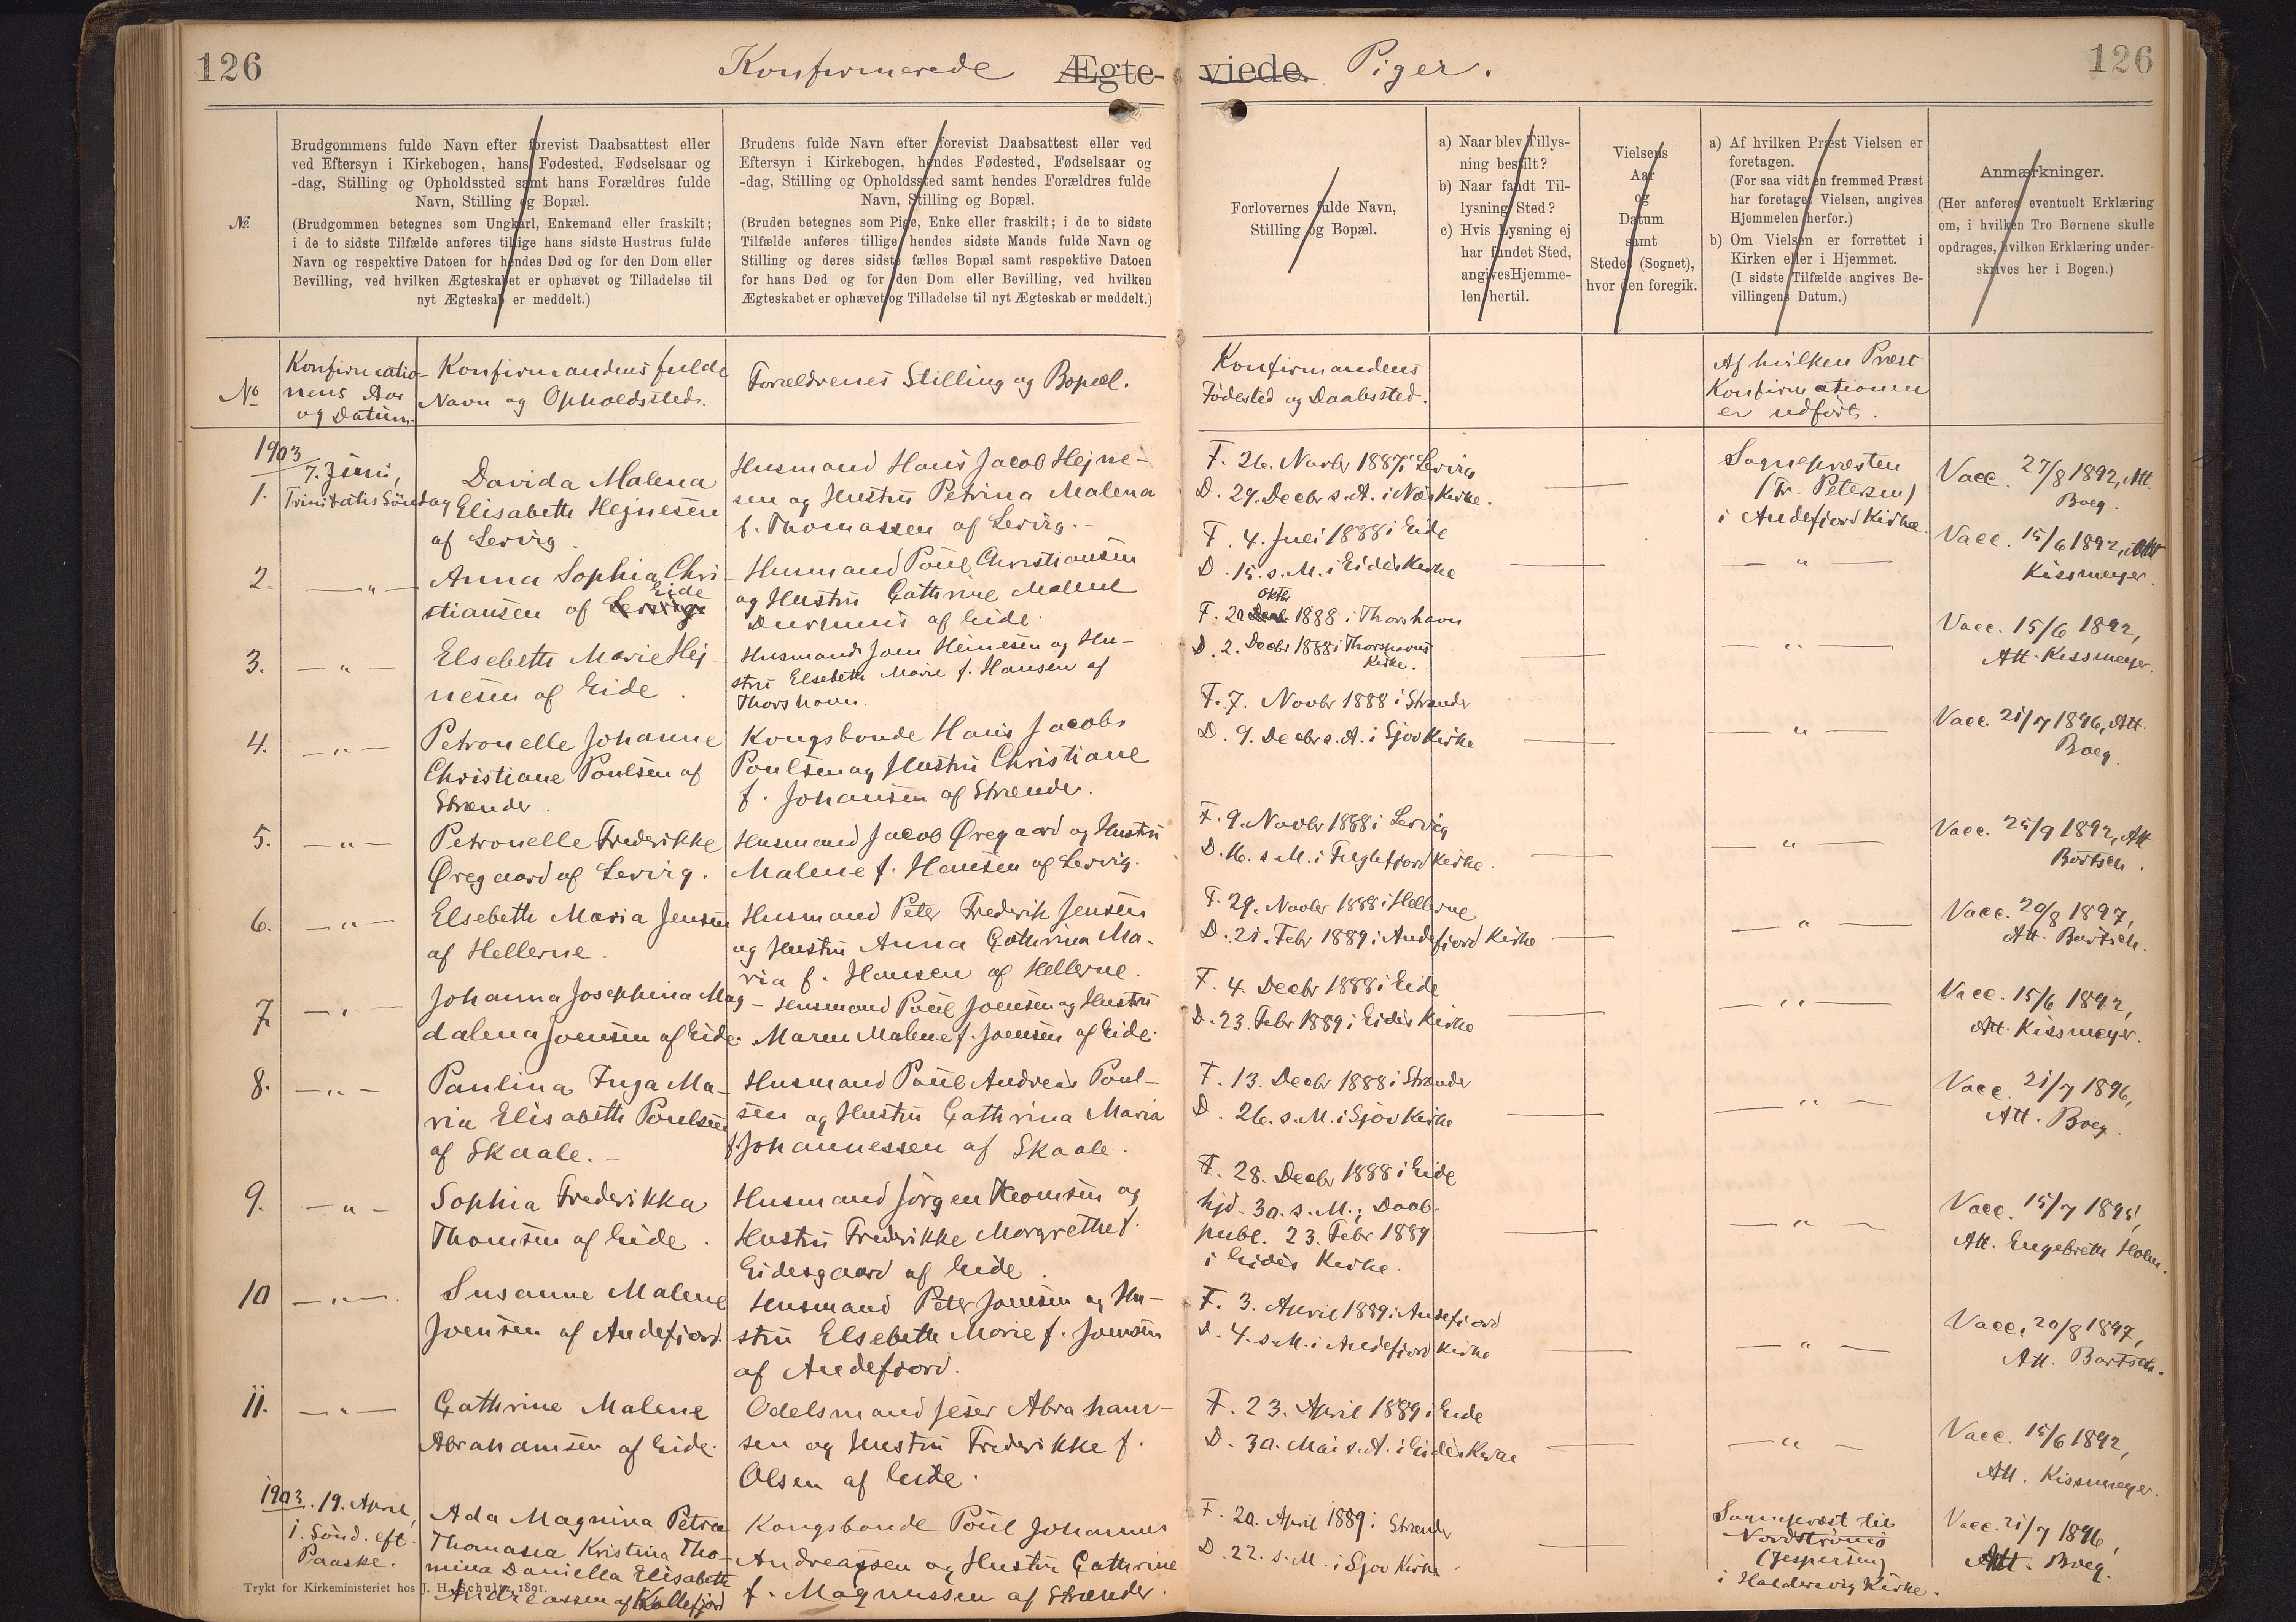 126
Konfirmerede Ægte-
viede. Piger.
126
№
Brudgommens fulde Navn efter forevist Daabsattest eller
ved Eftersyn i Kirkebogen, hans Fødested, Fødselsaar og
-dag, Stilling og Opholdssted samt hans Forældres fulde
Navn, Stilling og Bopæl.
(Brudgommen betegnes som Ungkarl, Enkemand eller fraskilt;
i de to sidste Tilfælde anføres tillige hans sidste Hustrus fulde
Navn og respektive Datoen for hendes Død og for den Dom eller
Bevilling, ved hvilken Ægteskabet er ophævet og Tilladelse til
nyt Ægteskab er meddelt.)
Brudens fulde Navn efter forevist Daabsattest eller ved
Eftersyn i Kirkebogen, hendes Fødested, Fødselsaar og
-dag, Stilling og Opholdssted samt hendes Forældres fulde
Navn, Stilling og Bopæl.
(Bruden betegnes som Pige, Enke eller fraskilt; i de to sidste
Tilfælde anføres tillige hendes sidste Mands fulde Navn og
Stilling og deres sidste fælles Bopæl samt respektive Datoen
for hans Død og for den Dom eller Bevilling, ved hvilken
Ægteskabet er ophævet og Tilladelse til nyt Ægteskab er meddelt.)
Forlovernes fulde Navn,
Stilling og Bopæl.
a) Naar blev Tillys-
ning bestilt?
b) Naar fandt Til-
lysning Sted?
c) Hvis Lysning ej
har fundet Sted,
angives Hjemme-
len hertil.
Vielsens
Aar
og
Datum
samt
Stedet (Sognet),
hvor den foregik.
a) Af hvilken Præst Vielsen er
foretagen.
(For saa vidt en fremmed Præst
har foretaget Vielsen, angives
Hjemmelen herfor.)
b) Om Vielsen er forrettet i
Kirken eller i Hjemmet.
(I sidste Tilfælde angives Be-
villingens Datum.)
Anmærkninger.
(Her anføres eventuelt Erklæring
om, i hvilken Tro Børnene skulle
opdrages, hvilken Erklæring under-
skrives her i Bogen.)
No
Konfirmatio-
nens Aar
og Datum.
Konfirmandens fulde
Navn og Opholdssted.
Forældrenes Stilling og Bopæl.
Konfirmandens
Fødested og Daabssted.
Af hvilken Præst
Konfirmationen
er udført.
1903
1.
7. Juni,
Trinitatis Søndag
Davida Malena
Elisabeth Hejnesen
af Lervig.
Husmand Hans Jacob Hejne-
sen og Hustru Petrina Malena
f. Thomassen af Lervig.-
F. 26. Novbr 1887 i Lervig
D. 29. Decbr s. A. i Næs Kirke.
Sognepræsten
(Fr. Petersen)
i Andefjord Kirke
Vacc. 27/8 1892, Att.
Boeg.
2. — " —
Anna Sophia Chri-
stiansen af Lervig Eide
Husmand Poul Christiansen
og Hustru Cathrine Malene
af Eide.
F. 4. Juli 1888 i Eide
D. 15. s. M. i Eides Kirke
— " —
Vacc. 15/6 1892, Att
Kissmeyer.
3. — " —
Elsebeth Marie Hej-
nesen af Eide.
Husmand Joen Heinesen og Hu-
stru Elsebeth Marie f. Hansen af
Thorshavn
F. 20 Oktbr 1888 i Thorshavn
D. 2. Decbr 1888 i Thorshavns
Kirke.
— " —
Vacc. 15/6 1892,
Att. Kissmeyer.
4. — " —
Petronelle Johanne
Christiane Poulsen af
Strænder.
Kongsbonde Hans Jacob
Poulsen og Hustru Christiane
f. Johansen af Strænder.
F. 7. Novbr 1888 i Strænder
D. 9. Decbr s. A. i Sjov Kirke
— " —
Vacc. 21/7 1896, Att.
Boeg.
5. — " —
Petronelle Frederikke
Øregaard af Lervig.
Husmand Jacob Øregaard og Hustru
Malene f. Hansen af Lervig.
F. 9. Novbr 1888 i Lervig
D. 16. s. M. i Fuglefjord Kirke.
— " —
Vacc. 25/9 1892, Att
Bartsch.
6. — " —
Elsebeth Maria Jensen
af Hellerne.
Husmand Peter Frederik Jensen
og Hustru Anna Cathrina Ma-
ria f. Hansen af Hellerne.
F. 29. Novbr 1888 i Hellerne
D. 21. Febr 1889 i Andefjord Kirke
— " —
Vacc. 20/8 1897,
Att. Bartsch.
7. — " —
Johanna Josephina Mag-
dalena Joensen af Eide.
Husmand Poul Joensen og Hustru
Maren Malene f. Joensen af Eide.
F. 4. Decbr 1888 i Eide
D. 23. Febr 1889 i Eides Kirke
— " —
Vacc. 15/6 1892,
Att. Kissmeyer.
8. — " —
Paulina Inga Ma-
ria Elisabeth Poulsen
af Skaale.-
Husmand Poul Andreas Poul-
sen og Hustru Cathrina Maria
f. Johannessen af Skaale.
F. 13. Decbr 1888 i Strænder
D. 26. s. M. i Sjov Kirke
— " —
Vacc. 21/7 1896,
Att. Boeg.
9. — " —
Sophia Frederikka
Thomsen af Eide.
Husmand Jørgen Thomsen og
Hustru Frederikke Margrethe f.
Eidesgaard af Eide.
F. 28. Decbr 1888 i Eide
hjd. 30. s. M.; Daab.
publ. 23. Febr 1889
i Eides Kirke.
— " —
Vacc. 15/7 1895,
Att. Engebreth Holm.
10 — " —
Susanne Malene
Joensen af Andefjord.
Husmand Peter Joensen og Hu-
stru Elsebeth Marie f. Joensen
af Andefjord.
F. 3. April 1889 i Andefjord
D. 4. s. M. i Andefjord Kirke
— " —
Vacc. 20/8 1897,
Att. Bartsch.
11. — " —
Cathrine Malene
Abrahamsen af Eide.
Odelsmand Jeser Abraham-
sen og Hustru Frederikke f.
Olsen af Eide.
F. 23. April 1889 i Eide
D. 30. Mai s. A. i Eides Kirke
— " —
Vacc. 15/6 1892,
Att. Kissmeyer.
1903. 19. April,
1. Sønd. eft.
Paaske.
Ada Magnina Petra
Thomasia Kristina Tho-
mina Daniella Elisabeth
Andreassen af Kollefjord
Kongsbonde Poul Johannes
Andreassen og Hustru Cathrine
f. Magnussen af Strænder.
F. 20. April 1889 i Strænder
D. 22. s. M. i Sjov Kirke.
Sognepræst til
Nordstrømø
(Jespersen)
i Haldersvig Kirke.
Vacc. 21/7 1896,
Att. Boeg.
Trykt for Kirkeministeriet hos J. H. Schultz. 1891.